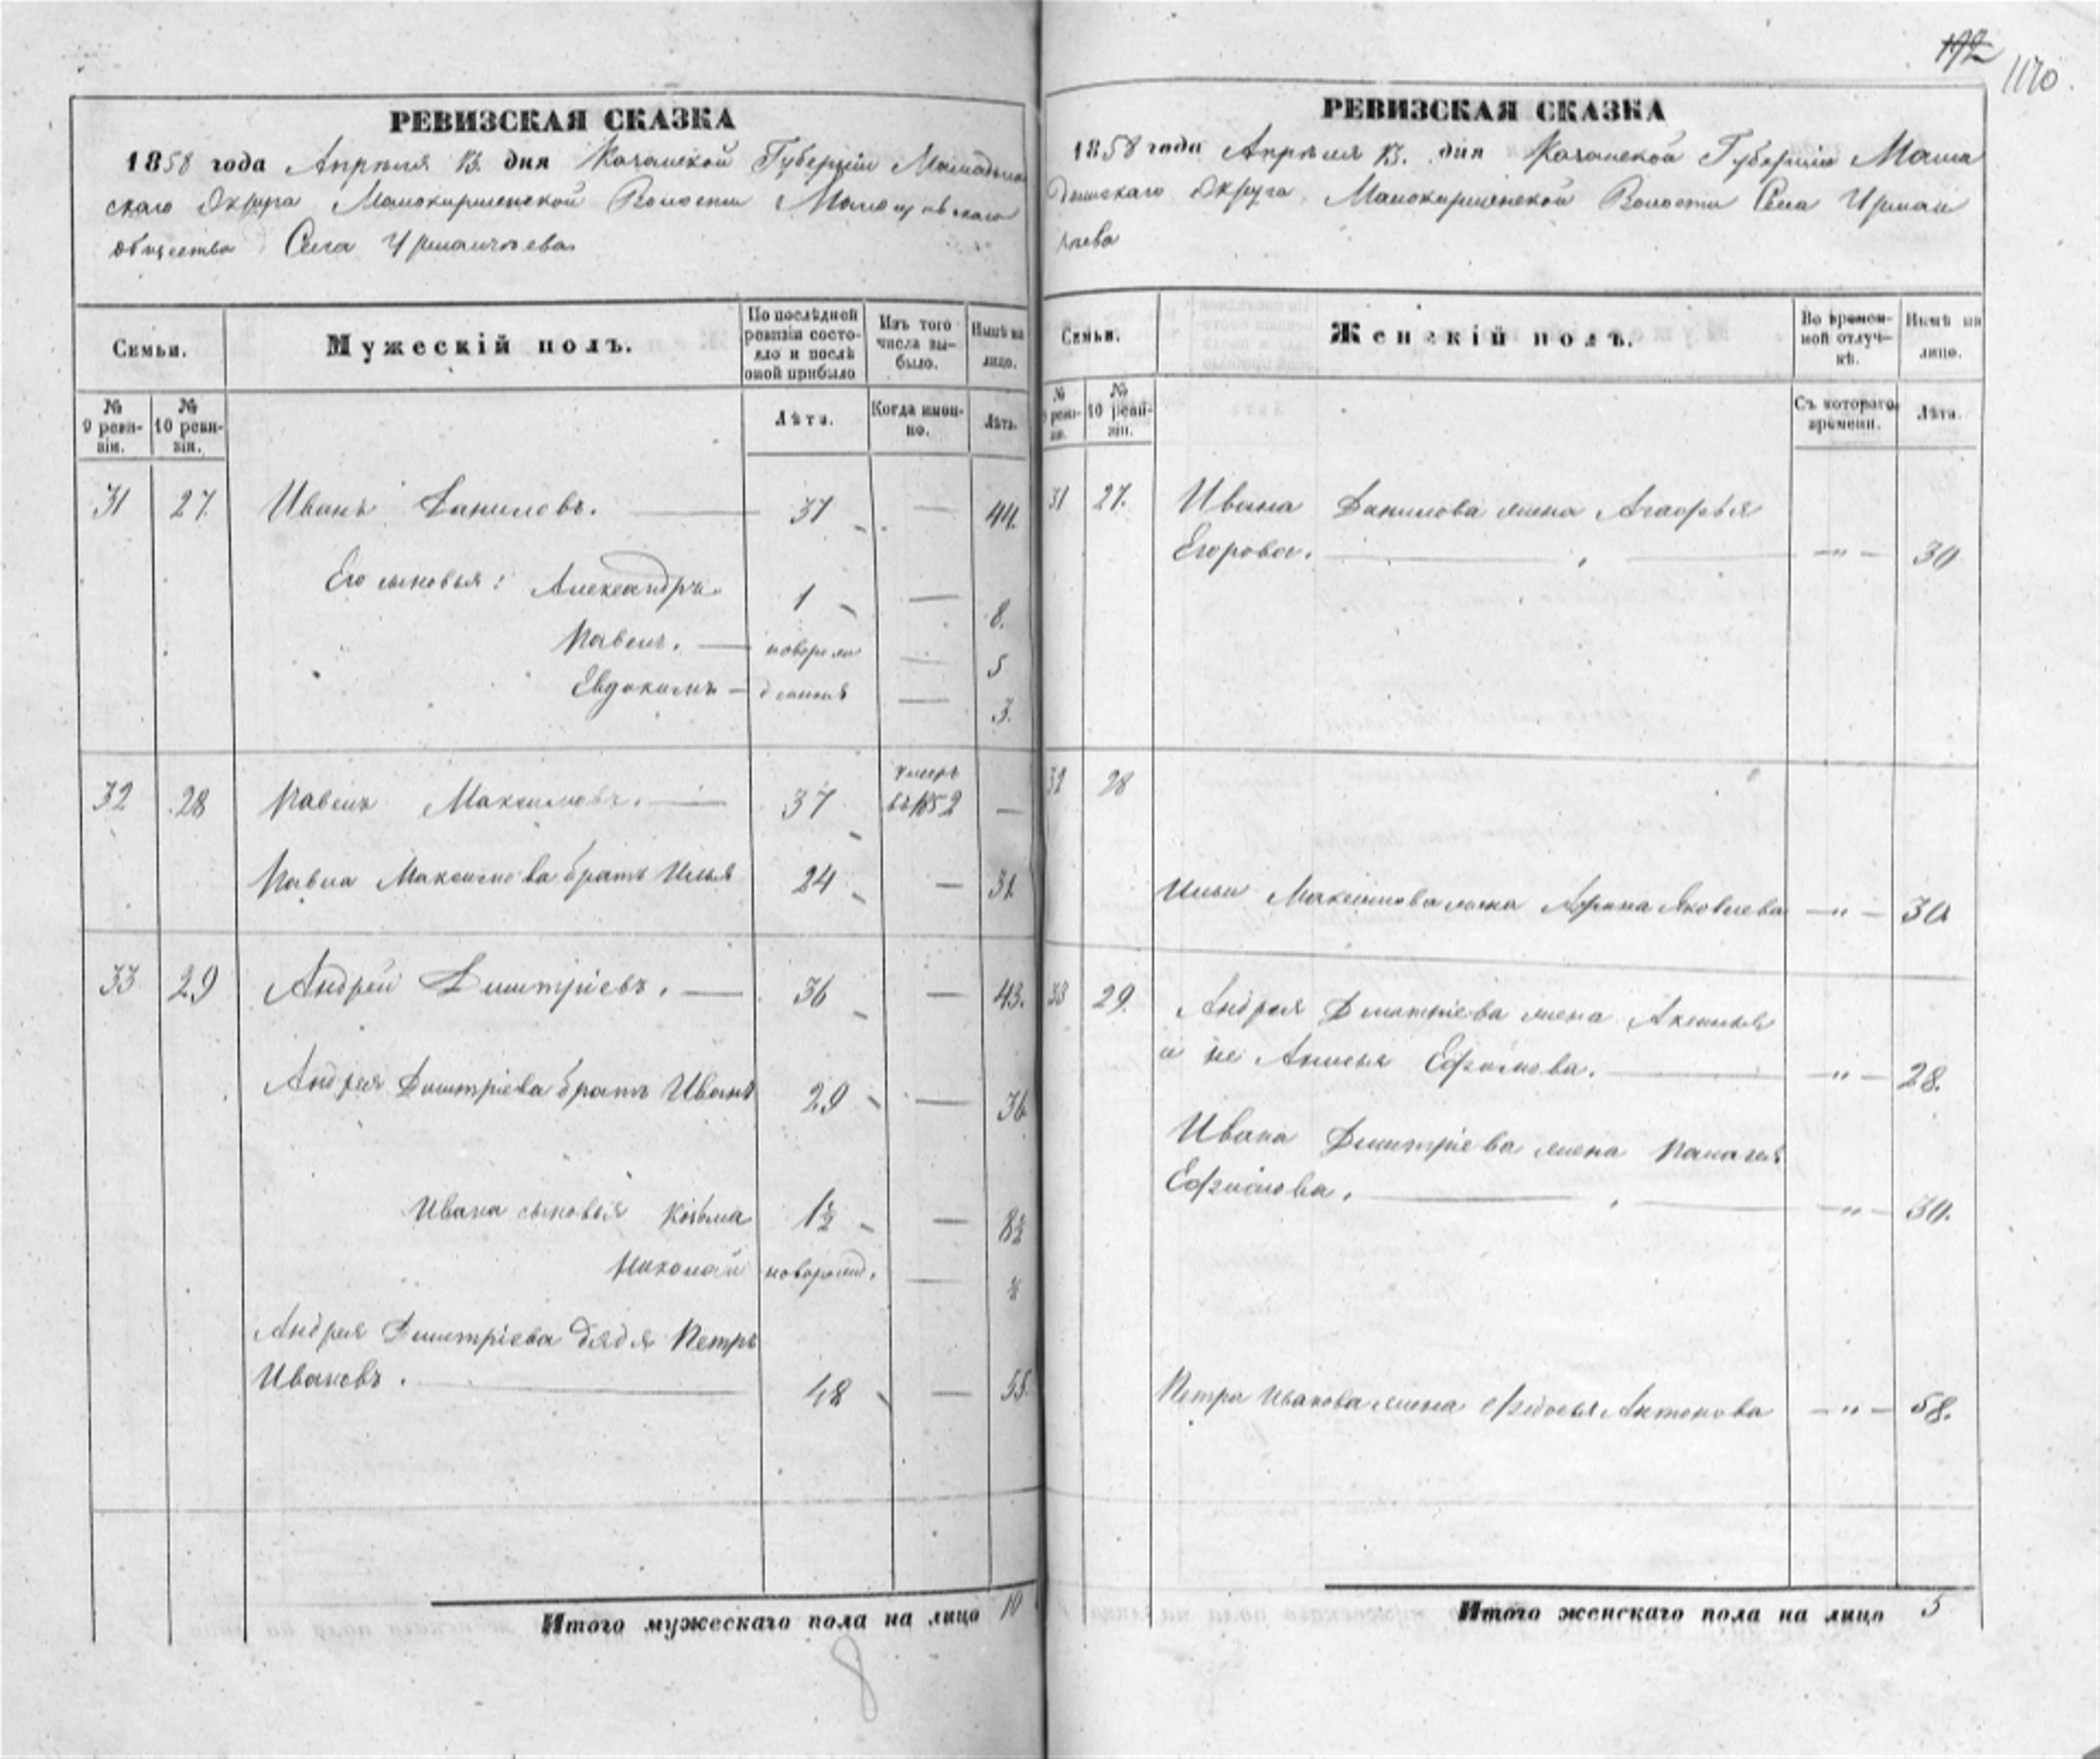 192
1170
РЕВИЗСКАЯ СКАЗКА
1858 года Апреля 13. дня Казанской Губернии Мамадыш
скаго Округа Малокирменской Волости
общества Села Урманчеева
Семьи.
Мужескій полъ.
По последней
ревизіи состо-
яло и послѣ
оной прибыло
Изъ того
числа вы-
было.
Нынѣ на
лицо.
№
9 реви-
зіи.
№
10 реви-
зіи.
Лѣта.
Когда имен-
но.
Лѣта.
31 27. Иванъ Даниловъ. 37 — 44.
Его сыновья: Александръ. 1 — 8.
Павелъ. — новорож — 5
Евдокимъ — денные — 3.
32 28 Павелъ Максимовъ. — 37 умеръ
въ 1852 —
Павла Максимова братъ Илья 24 — 31
33 29 Андрей Дмитріевъ. — 36 — 43.
Андрея Дмитріева братъ Иванъ 29 — 36
Ивана сыновья Козьма 1½ — 8½
Николай новорожд. — ½
Андрея Дмитріева дядя Петръ
Ивановъ. 48 — 55.
Итого мужескаго пола на лицо 10
8
РЕВИЗСКАЯ СКАЗКА
1858 года Апреля 13. дня Казанской Губерніи Мама
дышскаго Округа Малокирменской Волости Села Урман
чеева
Семьи.
Женскій полъ.
Во времен-
ной отлуч-
кѣ.
Нынѣ на
лицо.
№
9 реви-
зіи.
№
10 реви-
зіи.
Съ котораго
времени.
Лѣта.
31 27. Ивана Данилова жена Агафья
Егорова. — " — 30
32 28
Ильи Максимова жена Арина Яковлева — " — 30
33 29. Андрея Дмитріева жена Аксинья
а не Анисья Ефимова. — " — 28.
Ивана Дмитріева жена Палагея
Ефимова. — " — 30.
Петра Иванова жена Федосья Антонова — " — 58.
Итого женскаго пола на лицо 5